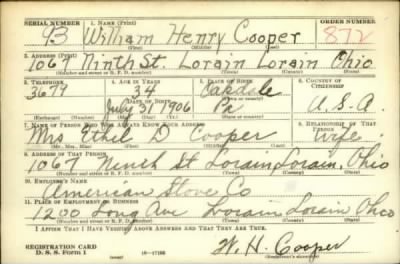 SERIAL NUMBER 1. NAME (Print) ORDER NUMBER
93 William Henry Cooper 872
(First) (Middle) (Last)
2. ADDRESS (Print)
1067 Ninth St. Lorain Lorain Ohio
(Number and street or R. F. D. number) (Town) (County) (State)
3. TELEPHONE 4. AGE IN YEARS 5. PLACE OF BIRTH 6. COUNTRY OF CITIZENSHIP
3679 34 Oakdale
DATE OF BIRTH (Town or county)
July 31 1906 Pa U.S.A.
(Exchange) (Number) (Mo.) (Day) (Yr.) (State or country)
7. NAME OF PERSON WHO WILL ALWAYS KNOW YOUR ADDRESS 8. RELATIONSHIP OF THAT PERSON
Mrs Ethel D Cooper Wife
(Mr., Mrs., Miss) (First) (Middle) (Last)
9. ADDRESS OF THAT PERSON
1067 Ninth St Lorain, Lorain, Ohio
(Number and street or R. F. D. number) (Town) (County) (State)
10. EMPLOYER'S NAME
American Stove Co
11. PLACE OF EMPLOYMENT OR BUSINESS
1200 Long Ave Lorain Lorain Ohio
(Number and street or R. F. D. number) (Town) (County) (State)
I AFFIRM THAT I HAVE VERIFIED ABOVE ANSWERS AND THAT THEY ARE TRUE.
REGISTRATION CARD
D. S. S. Form 1 W. H. Cooper